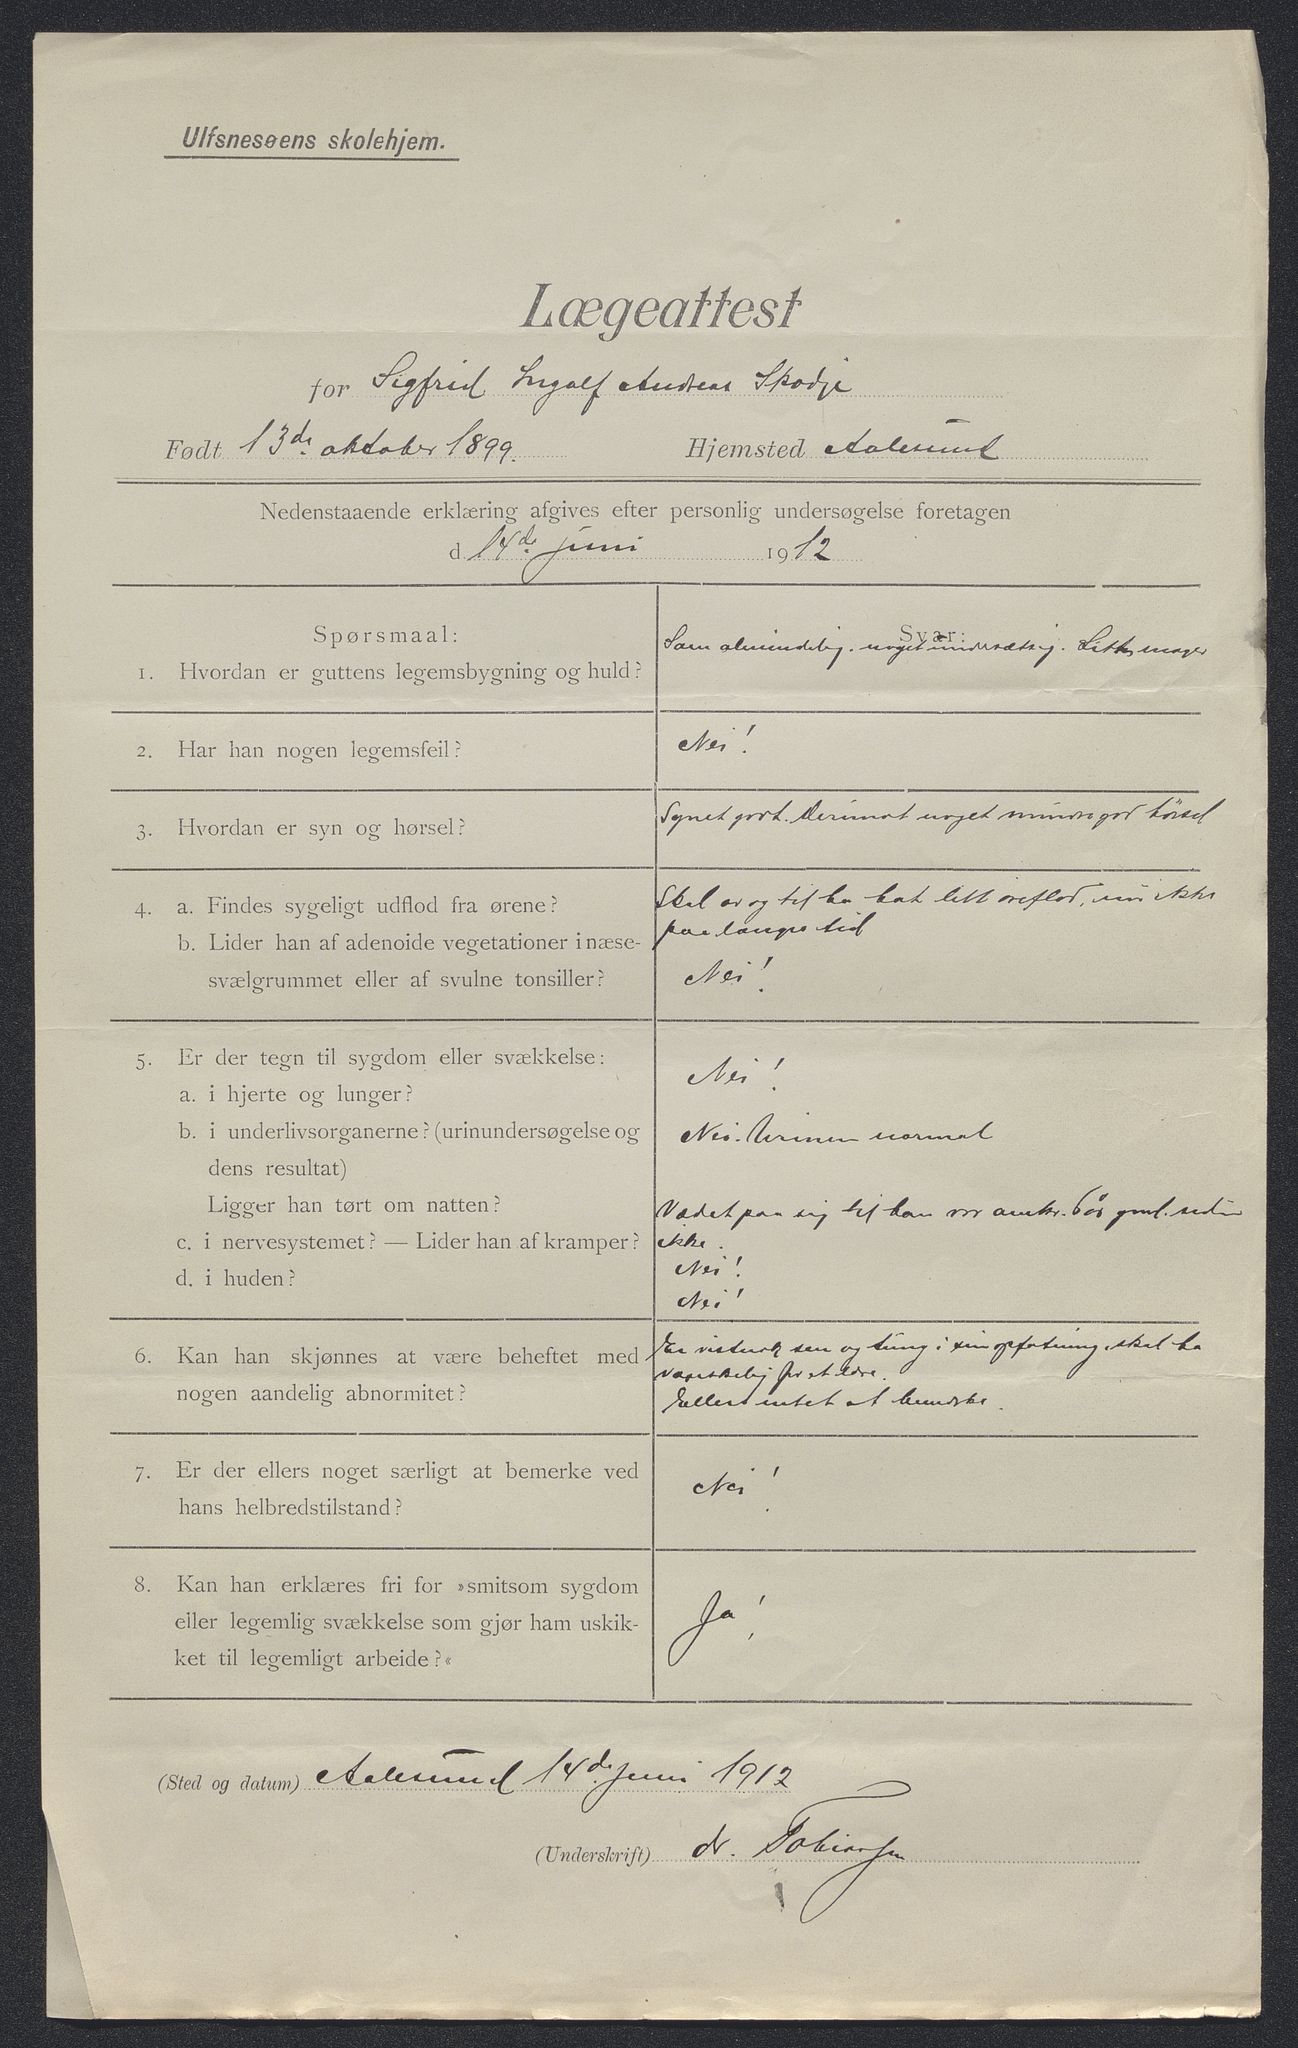 Ulfsnesøens skolehjem.
Lægeattest
for Sigfrid Ingolf Andreas Skodje
Født 13de oktober 1899. Hjemsted Aalesund
Nedenstaaende erklæring afgives efter personlig undersøgelse foretagen
d. 14de juni 1912
Spørsmaal: Svar:
1. Hvordan er guttens legemsbygning og huld? Som almindelig. noget undersætsig. Litt mager
2. Har han nogen legemsfeil? Nei!
3. Hvordan er syn og hørsel? Synet godt. Derimot noget mindre god hörsel
4. a. Findes sygeligt udflod fra ørene? Skal av og til ha hat litt öreflod, nu ikke
paa lange tid
b. Lider han af adenoide vegetationer i næse-
svælgrummet eller af svulne tonsiller? Nei!
5. Er der tegn til sygdom eller svækkelse:
a. i hjerte og lunger? Nei!
b. i underlivsorganerne? (urinundersøgelse og Nei. Urinen normal
dens resultat)
Ligger han tørt om natten? Vædet paa sig til han var omkr. 6 år gml. siden
ikke.
c. i nervesystemet? — Lider han af kramper? Nei!
d. i huden? Nei!
6. Kan han skjønnes at være beheftet med Er vistnok sen og tung i sin opfatning, skal ha
vanskelig for at lære.
nogen aandelig abnormitet? Ellers intet at bemerke.
7. Er der ellers noget særligt at bemerke ved
hans helbredstilstand? Nei!
8. Kan han erklæres fri for »smitsom sygdom
eller legemlig svækkelse som gjør ham uskik- Ja!
ket til legemligt arbeide?«
(Sted og datum) Aalesund 14de juni 1912
(Underskrift) dr. Tobiassen